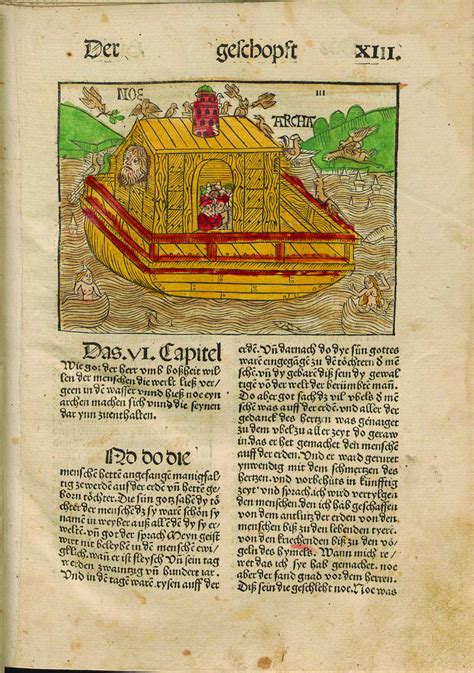 Der geschopft XIII.
NOE
III
ARCHA
Das .VI. Capitel
Wie got der herr vmb boßheit wil
len der menschen die werlt ließ ver
geen in dē wasser vnnd hieß noe eyn
archen machen sich vnnd die seynen
dar ynn zuenthalten.
ND do die
menschē hettē angefangē manigfal
tig zewerdē auf der erdē vñ hettē ge
born töchter. Die sün gotz sahē dy tö
chter der menschē dz sy warē schön sy
namē in weyber auß allē dē dy sy er
weltē. vñ got der sprach Meyn geist
wirt nit beleybē in dē menschē ewig
glich. wañ er ist fleysch Vñ sein tag
werden zwaintzig vñ hundert iar.
Vnd in dē tagē warē rysen auf der
erdē. Vñ darnach do dye sün gottes
warē eingegāgē zu dē töchtern d̄ mē
schē vñ dy gebarē diß sein dy gewal
tigē vō der welt der berümbtē man.
Do aber got sach dz vil vbels d̄ men
schē was auff der erdē vnd aller der
gedanck des hertzen was genaiget
zu dem vbel zu aller zeyt do geraw
in das er het gemachet den menschē
auf der erdē. Vnd er ward gerürt
ynwendig mit dem schmertzen des
hertzen. vnd vorbehüts in künfftig
zeyt vnd sprach. ich wird vertylgen
den menschen den ich hab geschaffen
von dem antlütz der erden von den
menschen biß zu den lebenden tyerē.
von den kriechenden biß zu den vö
geln des hymels. Wann mich re
wet das ich sye hab gemachet. noe
aber der fand gnad vor dem herren.
Diß sein die geschlecht noe. Noe was